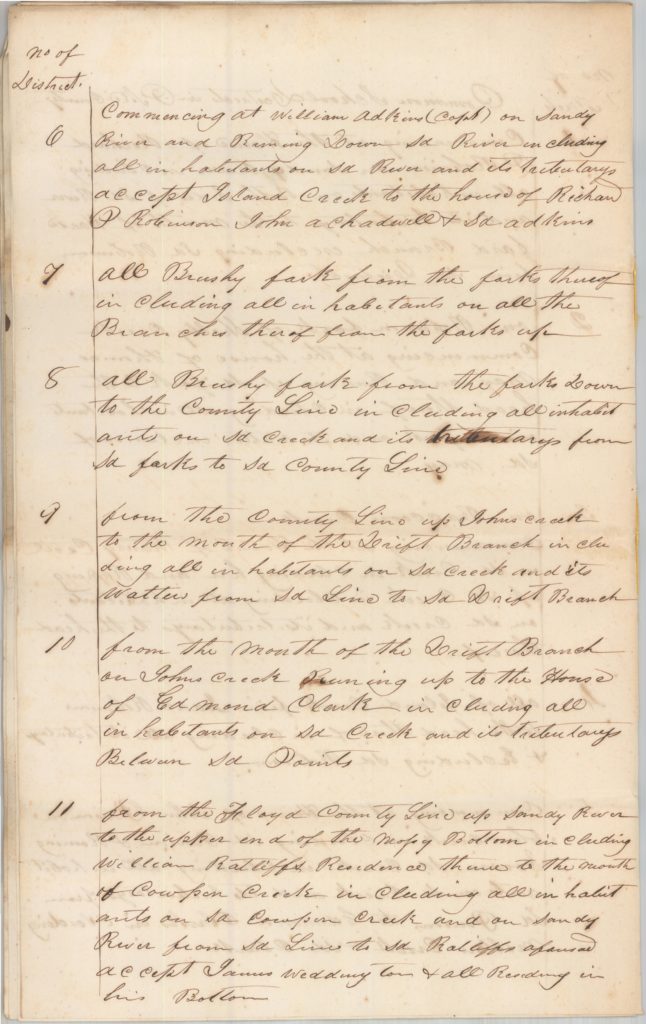 no of
District.
Commencing at William Adkins (Capt) on Sandy
6 River and Runing Down Sd River in cluding
all in habitants on Sd River and its tributarys
accept Island Creek to the house of Richard
P Robinson John a chadwell & Sd adkins
7 all Brushy fark from the farks thereof
in cluding all in habitants on all the
Branches therof from the farks up
8 all Brushy fark from the farks Down
to the County Line in cluding all inhabit
ants on Sd Creek and its tributarys from
Sd farks to Sd County Line
9 from the County Line up Johns creek
to the mouth of the Drift Branch in clu
ding all in habitants on Sd Creek and its
Watters from Sd Line to Sd Drift Branch
10 from the mouth of the Drift Branch
on Johns creek Runing up to the House
of Edmond Clark in cluding all
in habitants on Sd Creek and its tributarys
Between Sd Points
11 from the Floyd County Line up Sandy River
to the upper end of the Mossy Bottom in cluding
William Ratliffs Residence thence to the mouth
of Cowpen Creek in cluding all in habit
ants on Sd Cowpen Creek and on Sandy
River from Sd Line to Sd Ratliffs aforsaid
accept James Weddington & all Residing in
his Bottom